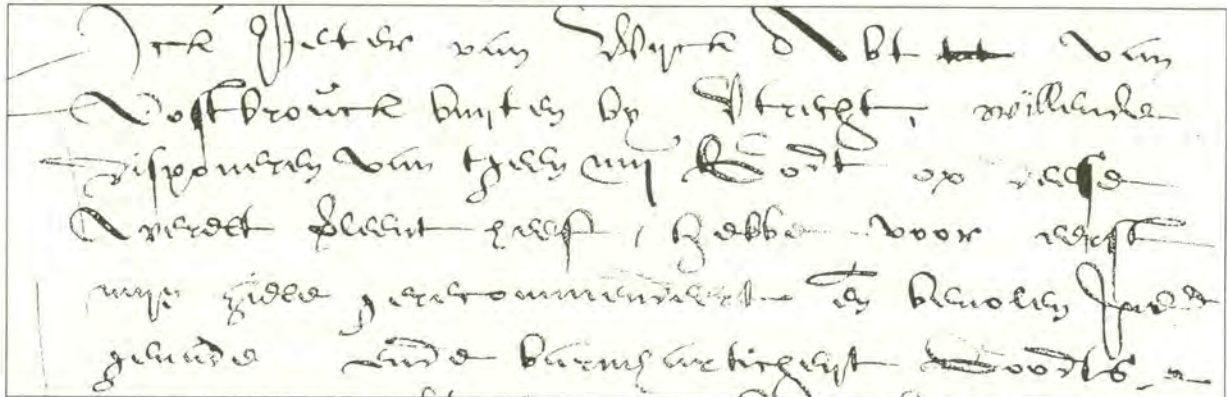 Ick Peter van Wijck Abt van
Oostbroück buijten by Vtrecht, willende
disponeren van tgeen mij Godt op deese
Werelt verleent heeft, hebbe voor eerst
mijn ziele gerecommendeert en bevolen
genade ende barmharticheijt Goodts